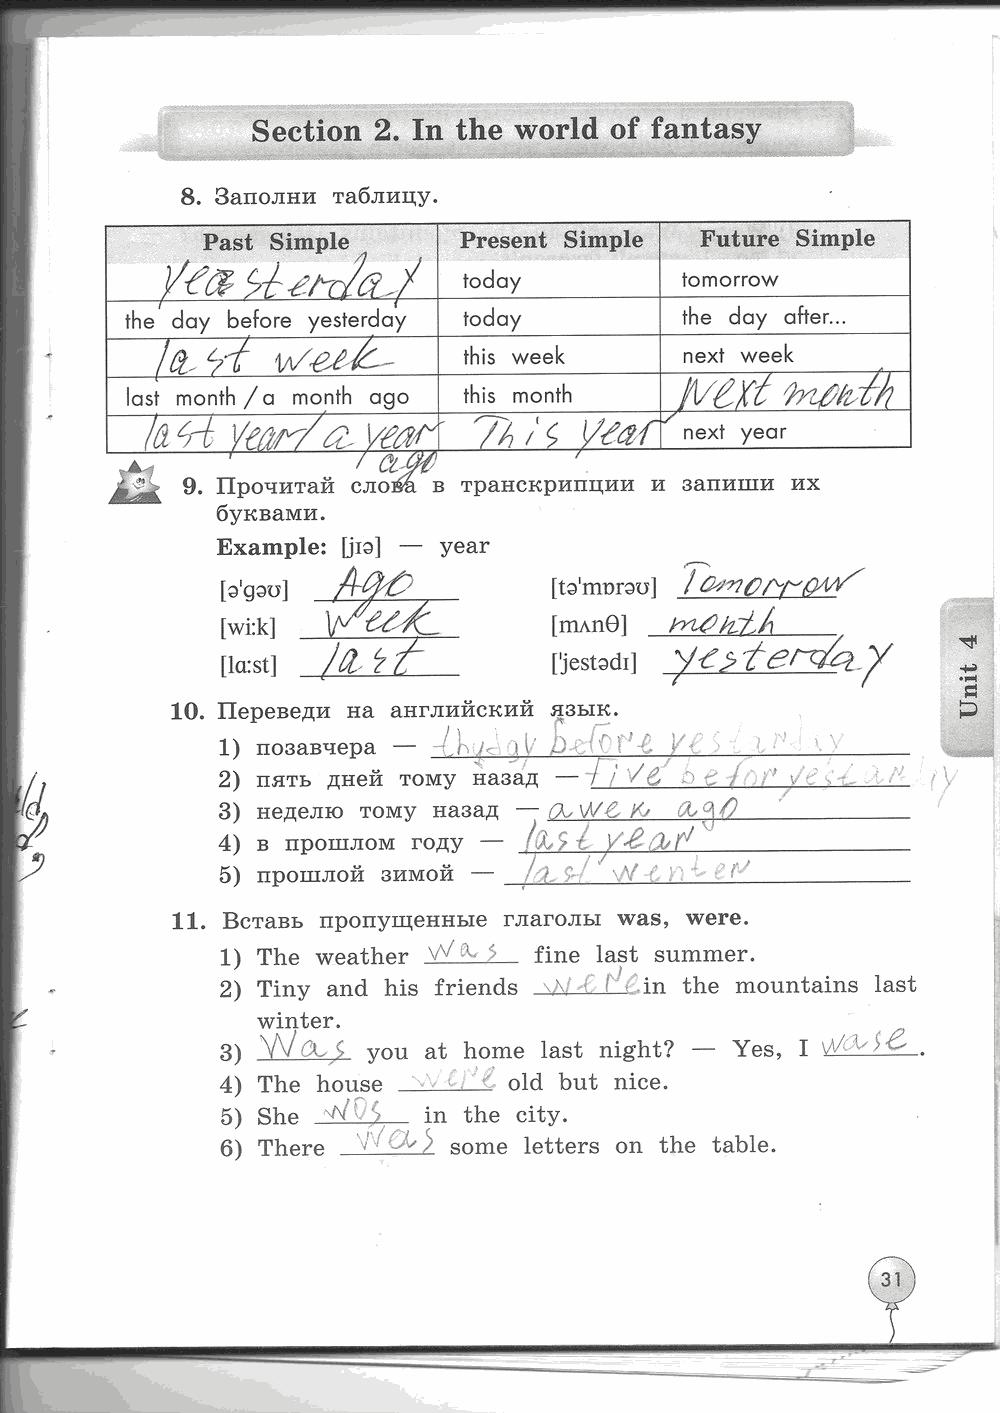 Section 2. In the world of fantasy
8. Заполни таблицу.
Past Simple Present Simple Future Simple
yeasterday today tomorrow
the day before yesterday today the day after...
last week this week next week
last month / a month ago this month Next month
last year / a year ago This year next year
9. Прочитай слова в транскрипции и запиши их
буквами.
Example: [jɪə] — year
[ə'gəʊ] Ago [tə'mɒrəʊ] Tomorrow
[wi:k] Week [mʌnθ] month
[lɑ:st] last ['jestədɪ] yesterday
10. Переведи на английский язык.
1) позавчера — thyday before yestarday
2) пять дней тому назад — five befor yestarday
3) неделю тому назад — a wek ago
4) в прошлом году — last year
5) прошлой зимой — last wenter
11. Вставь пропущенные глаголы was, were.
1) The weather was fine last summer.
2) Tiny and his friends were in the mountains last
winter.
3) Was you at home last night? — Yes, I wase.
4) The house were old but nice.
5) She wos in the city.
6) There was some letters on the table.
Unit 4
31